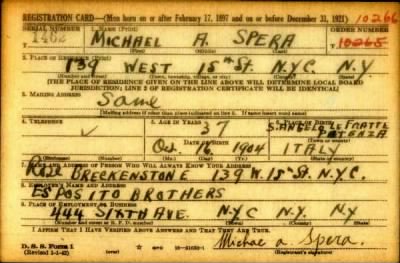 REGISTRATION CARD—(Men born on or after February 17, 1897 and on or before December 31, 1921) 10266
SERIAL NUMBER 1. NAME (Print) ORDER NUMBER
1462 MICHAEL A. SPERA 10265
(First) (Middle) (Last)
2. PLACE OF RESIDENCE (Print)
139 WEST 15th St. N.Y.C. N.Y
(Number and street) (Town, township, village, or city) (County) (State)
[THE PLACE OF RESIDENCE GIVEN ON THE LINE ABOVE WILL DETERMINE LOCAL BOARD
JURISDICTION; LINE 2 OF REGISTRATION CERTIFICATE WILL BE IDENTICAL]
3. MAILING ADDRESS
Same
[Mailing address if other than place indicated on line 2. If same insert word same]
4. TELEPHONE 5. AGE IN YEARS 6. PLACE OF BIRTH
37 S. ANGELO LE FRATTE
POTENZA
DATE OF BIRTH
Oct. 16 1904 ITALY
(Mo.) (Day) (Yr.) (State or country)
7. NAME AND ADDRESS OF PERSON WHO WILL ALWAYS KNOW YOUR ADDRESS
Rose BRECKENSTONE 139 W. 15th St. N.Y.C.
8. EMPLOYER'S NAME AND ADDRESS
ESPOSITO BROTHERS
9. PLACE OF EMPLOYMENT OR BUSINESS
444 SIXTH AVE. N.Y.C N.Y. N.Y
(Number and street or R. F. D. number) (Town) (County) (State)
I AFFIRM THAT I HAVE VERIFIED ABOVE ANSWERS AND THAT THEY ARE TRUE.
D. S. S. Form 1
(Revised 1-1-42) (over) Michael A. Spera.
(Registrant's signature)